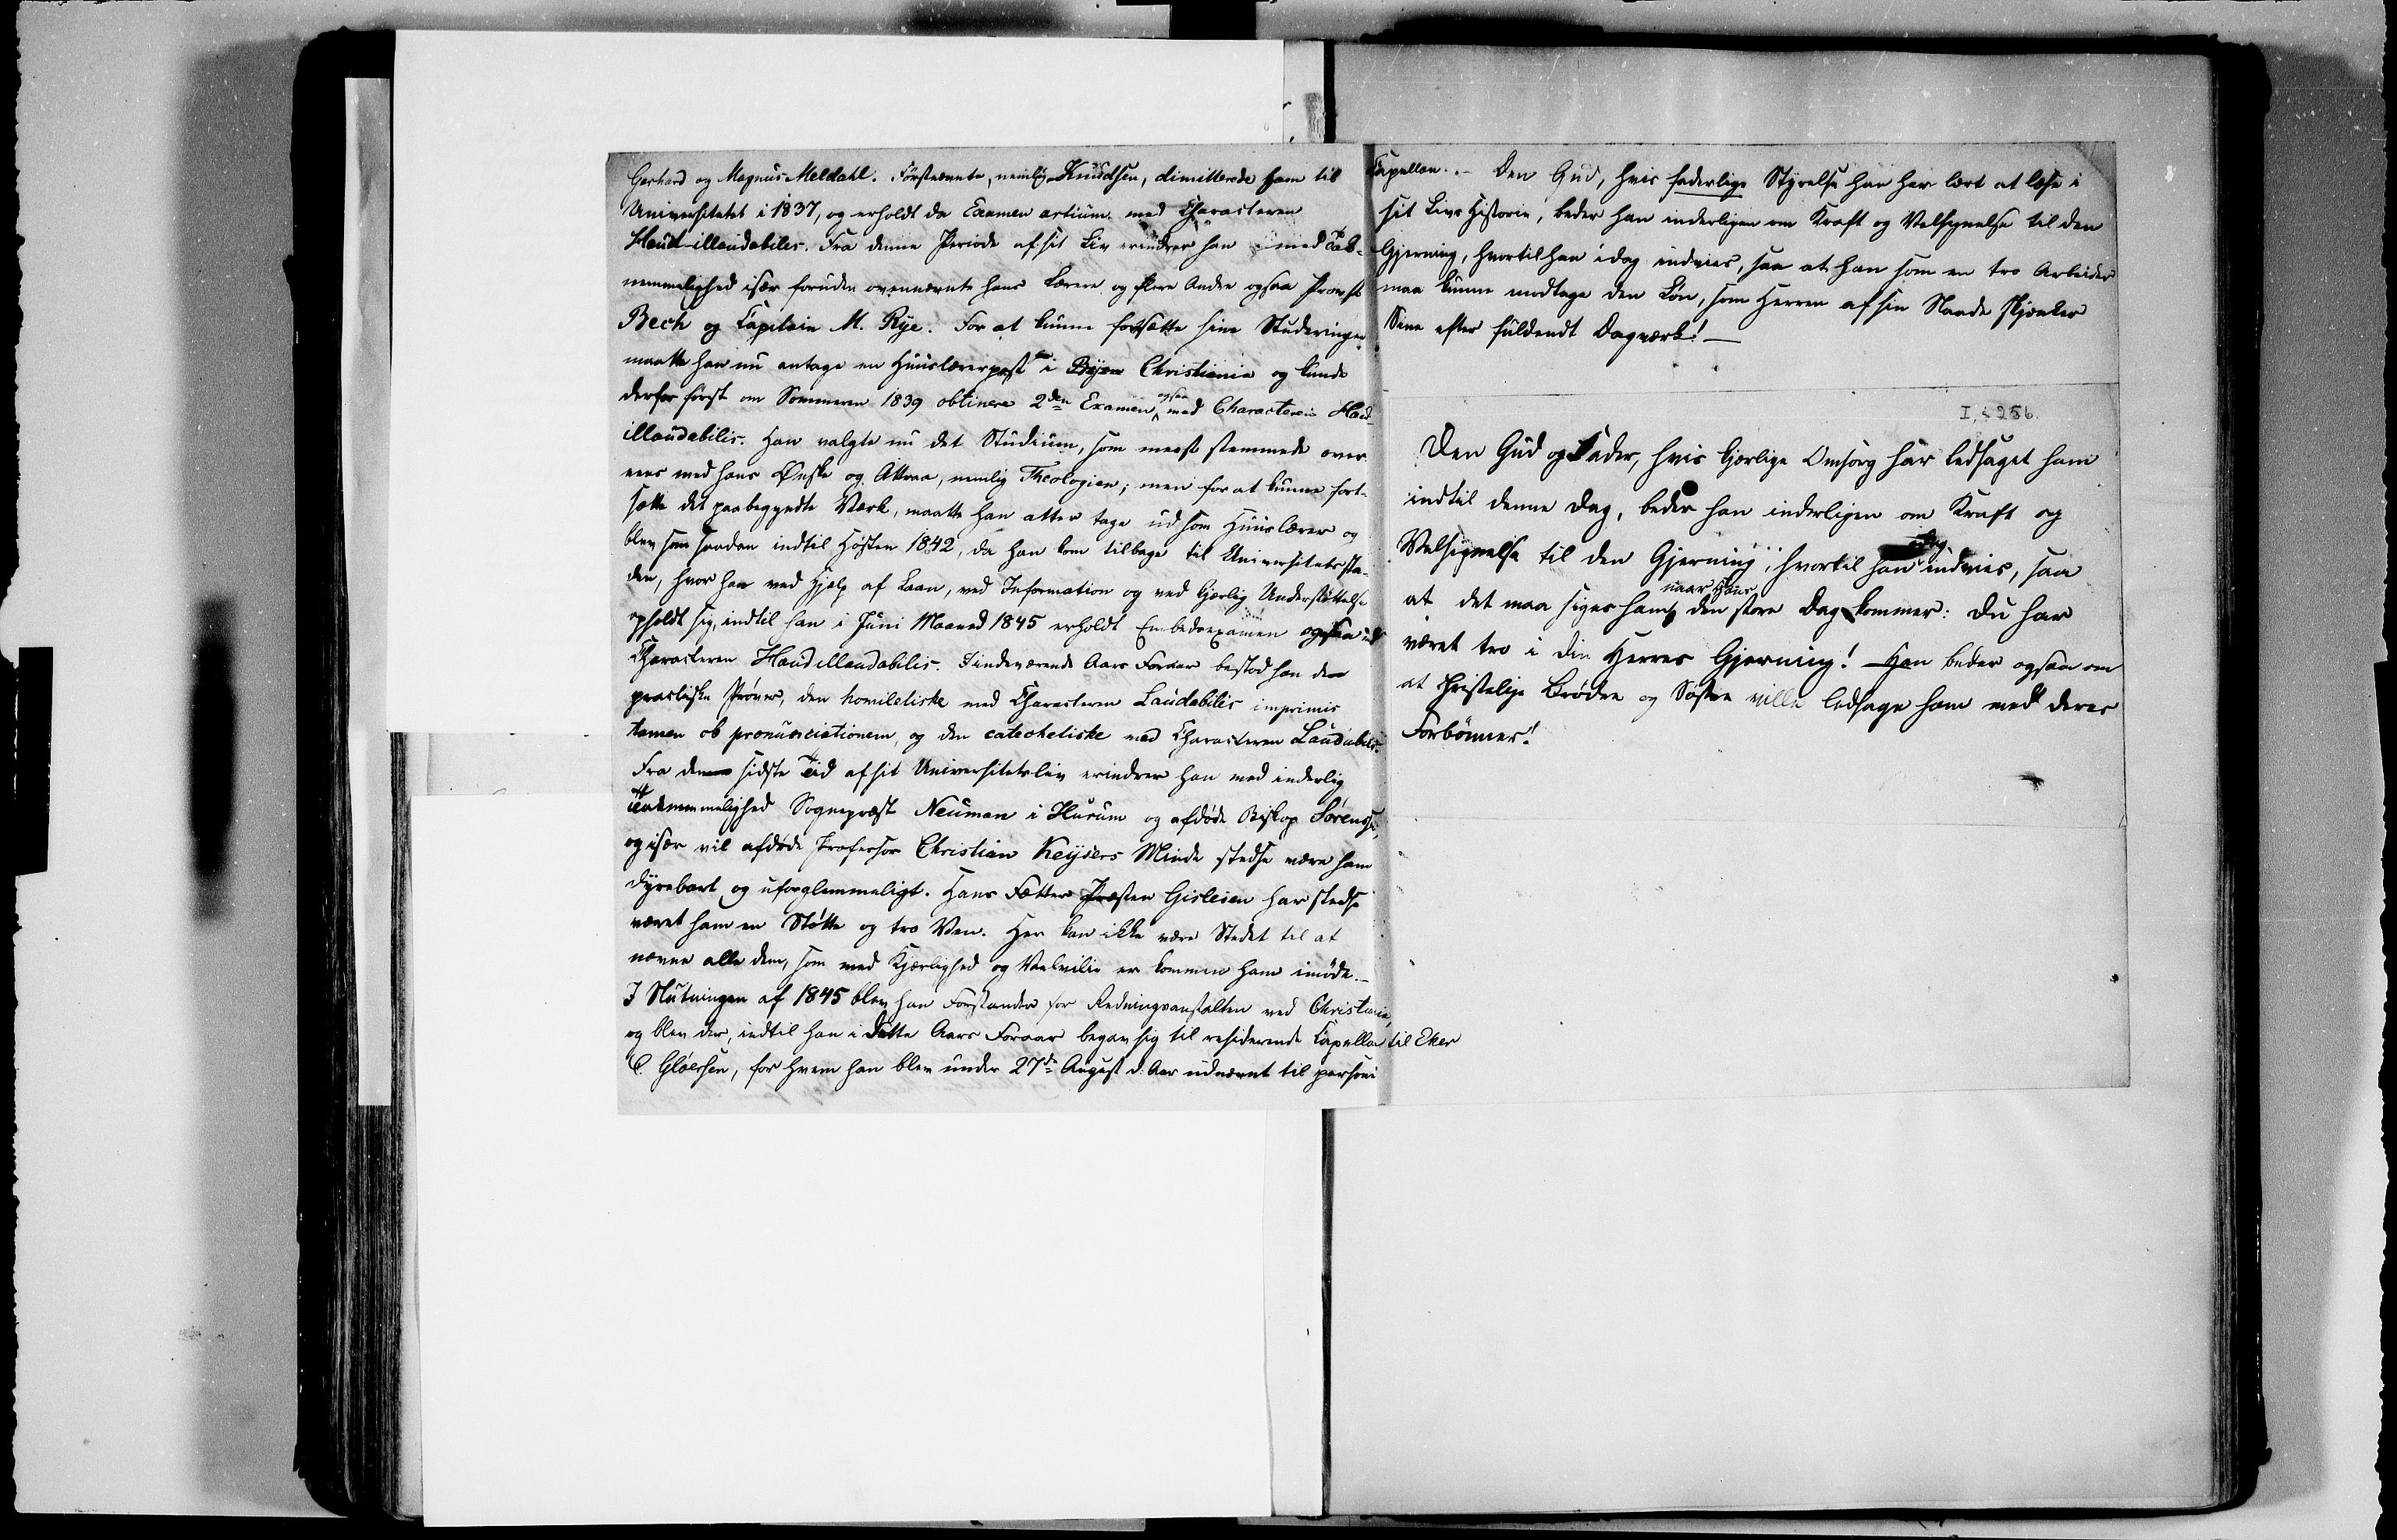 Gerhard og Magnus Meldahl. Førstnævnte, nemlig Knudsen, dimitterede ham til
Universitetet i 1837, og erholdt da Examen artium med Characteren
Haud-illaudabilis. Fra denne Periode af sit Liv erindrer han med Tak-
nemmelighed især foruden ovennævnte hans Lærere og flere Andre ogsaa Provst
Bech og Capitain M. Rye. For at kunne fortsætte sine Studeringer
maatte han nu antage en Huuslærerpost i Byen Christiania og kunde
derfor først om Sommeren 1839 obtinere 2den Examen, ogsaa med Characteren Haud
illaudabilis. Han valgte nu det Studium, som meest stemmede over
eens med hans Ønske og Attraa, nemlig Theologien; men for at kunne fort-
sætte det paabegyndte Værk, maatte han atter tage ud som Huuslærer og
blev som saadan indtil Høsten 1842, da han kom tilbage til Universitetssta-
den, hvor han ved Hjelp af Laan, ved Information og ved kjærlig Understøttelse
opholdt sig, indtil han i Juni Maaned 1845 erholdt Embedsexamen ogsaa med
Characteren Haudillaudabilis. I indeværende Aars Foraar bestod han den
practiske Prøver, den homiletiske med Characteren Laudabilis imprimis
tamen ob pronunciationem, og den catechetiske med Characteren Laudabilis.
Fra denne sidste Tid af sit Universitetsliv erindrer han med inderlig
Taknemmelighed Sognepræst Neuman i Hurum og afdøde Biskop Sørenssen,
og især vil afdøde Professor Christian Keysers Minde stedse være ham
dyrebart og uforglemmeligt. Hans Fætter Præsten Gislesen har stedse
været ham en Støtte og tro Ven. Her kan ikke være Stedet til at
nævne alle dem, som med Kjærlighed og Velvilie er kommen ham imøde. –
I Slutningen af 1845 blev han Forstander for Redningsanstalten ved Christiania,
og blev der, indtil han i dette Aars Foraar begav sig til residerende Capellan til Eker
C. Gløersen, for hvem han blev under 27de August d. Aar udnævnt til personl
Capellan. – Den Gud, hvis faderlige Styrelse han har lært at læse i
sit Livs Historie, beder han inderligen om Kraft og Velsignelse til den
Gjerning, hvortil han idag indvies, saa at han som en tro Arbeider
maa kunne modtage den Løn, som Herren af sin Naade skjænker
Sine efter fuldendt Dagværk! –
I, § 256.
Den Gud og Fader, hvis kjærlige Omsorg har ledsaget ham
indtil denne Dag, beder han inderligen om Kraft og
Velsignelse til den Gjerning, hvortil han idag indvies, saa
at det maa siges ham, naar Hans den store Dag kommer: Du har
været tro i din Herres Gjerning! – Han beder ogsaa om
at christelige Brødre og Søstre ville ledsage ham med deres
Forbønner!